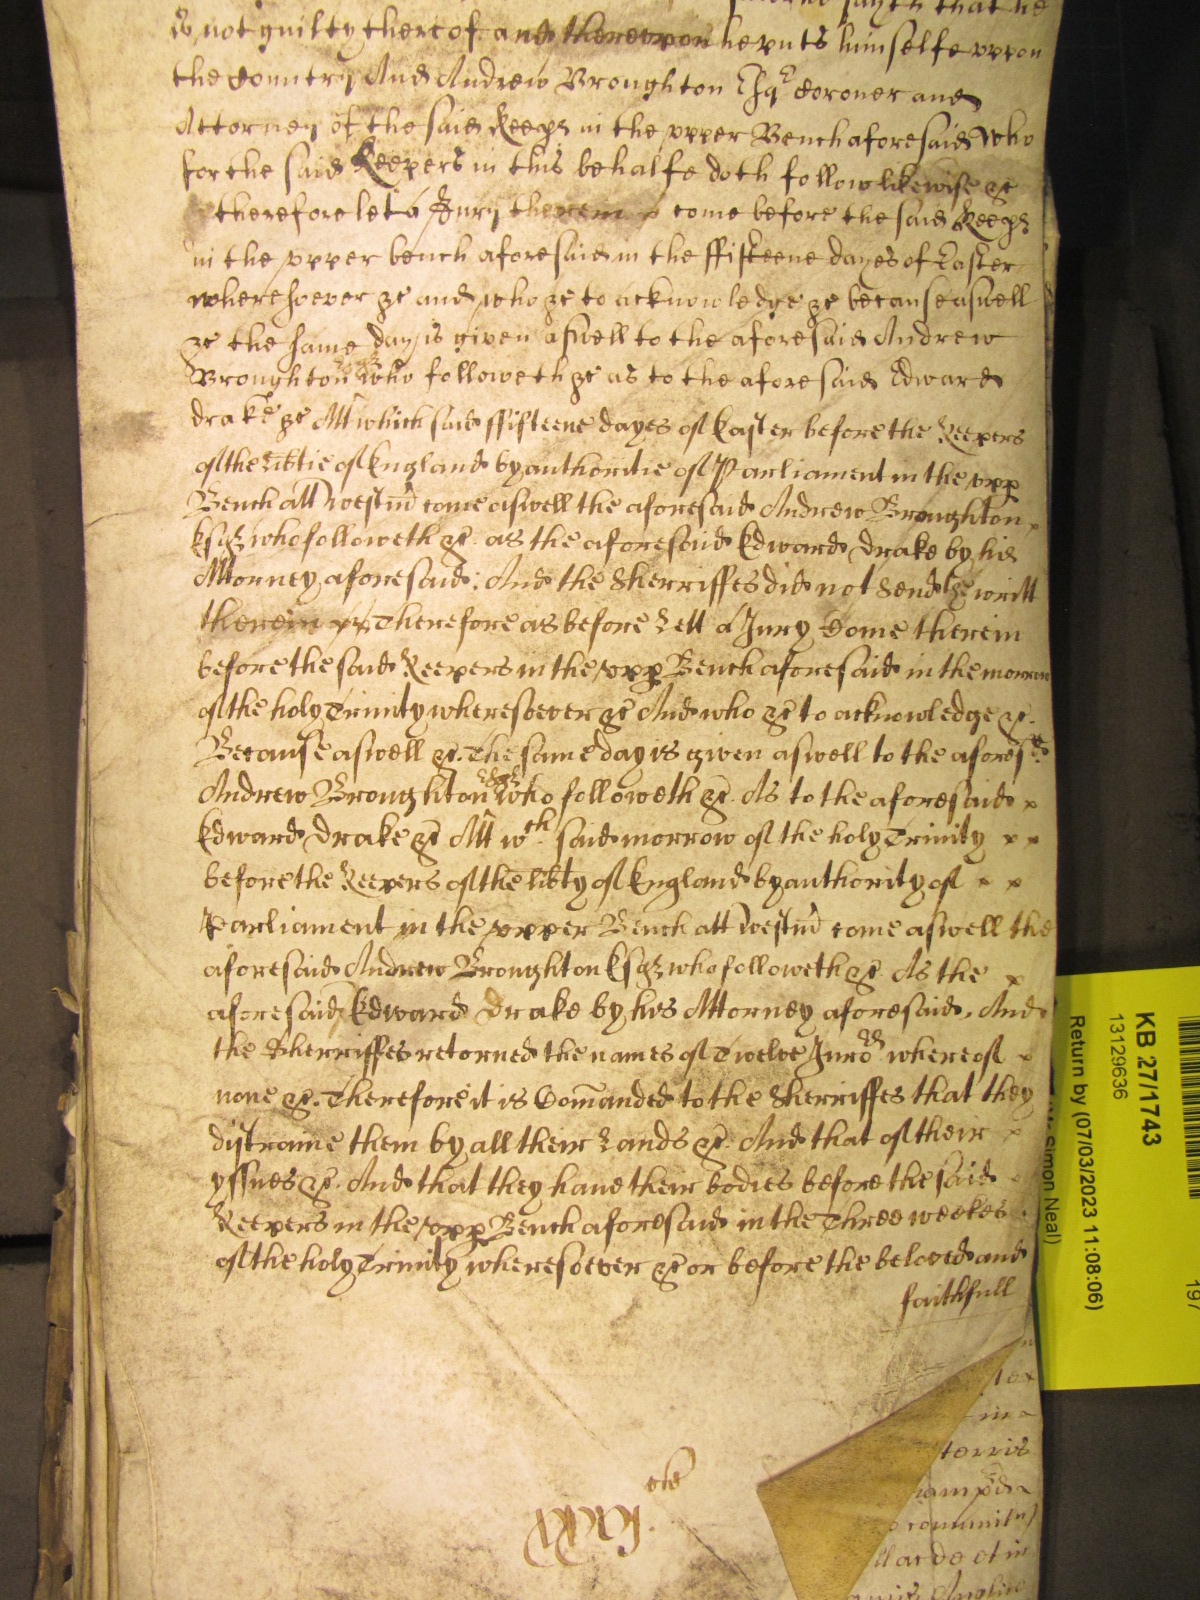 sayth that he
is not guilty thereof and thereupon he puts himselfe uppon
the Country And Andrew Broughton Esqr Coroner and
Attorney of the said Keeps in the upper Bench aforesaid who
for the said Keepers in this behalfe doth follow likewise &c
therefore let a Jury therein x come before the said Keeps
in the upper bench aforesaid in the ffifteene dayes of Easter
wheresoever &c and who &c to acknowledge &c because aswell
&c the same day is given aswell to the aforesaid Andrew
Broughton Esqr who followeth &c as to the aforesaid Edward
drake &c Att which said ffifteene dayes of Easter before the Keepers
of the Libtie of England by authoritie of Parliament in the upp
Bench att Westm come aswell the aforesaid Andrew Broughton x
Esqr who followeth &c. as the aforesaid Edward Drake by his
Attorney aforesaid: And the Sherriffes did not send the writt
therein x Therefore as before Lett a Jury Come therein
before the said Keepers in the upp Bench aforesaid in the morrow
of the holy Trinity wheresoever &c And who &c to acknowledge &c.
Because aswell &c. The same day is given aswell to the aforesd
Andrew Broughton Esqr who followeth &c. As to the aforesaid x
Edward Drake &c Att wch said morrow of the holy Trinity x x
before the Keepers of the libty of England by authority of x x
Parliament in the upper Bench att Westm come aswell the
aforesaid Andrew Broughton Esqr who followeth &c. As the x
aforesaid Edward Drake by his Attorney aforesaid. And
the Sherriffes retorned the names of Twelve Juro whereof x
none &c. Therefore it is Comanded to the Sherriffes that they
distraine them by all their Lands &c. And that of their x
yssues &c. And that they have their bodies before the said
Keepers in the upp Bench aforesaid in the Three weekes
of the holy Trinity wheresoever &c or before the beloved and
faithfull
KB 27/1743
13129636
Simon Neal)
Return by (07/03/2023 11:08:06)
197